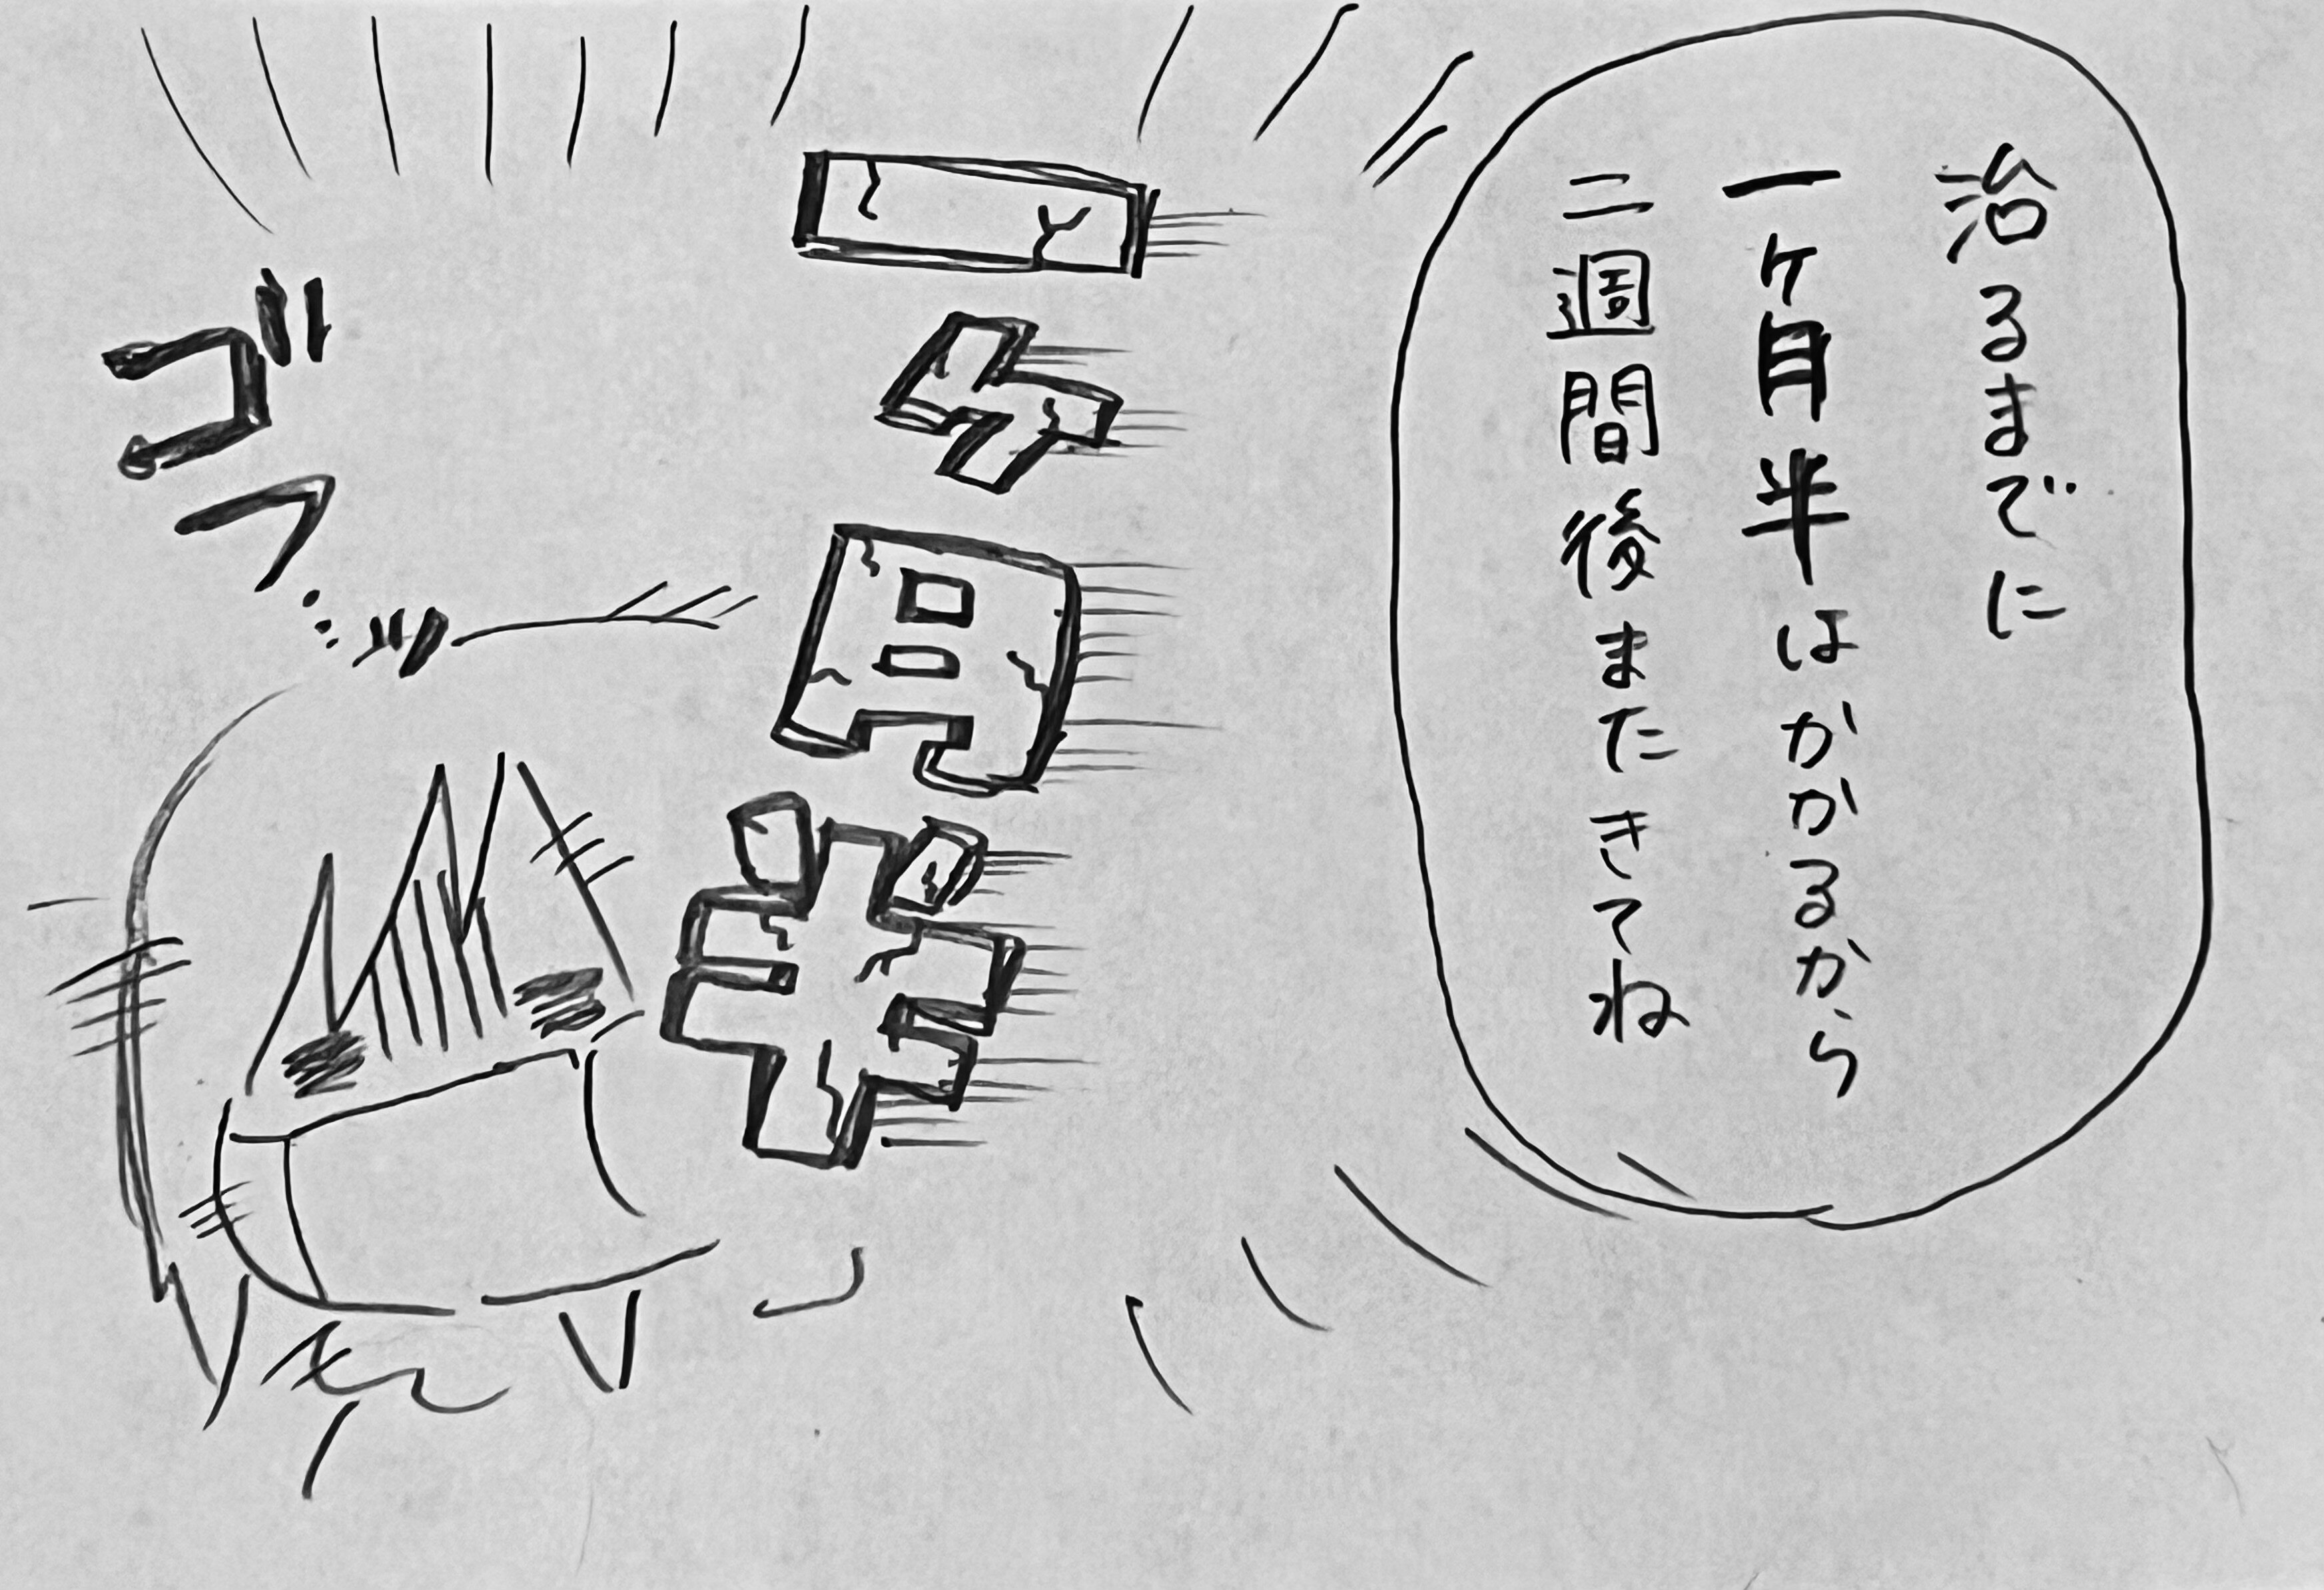 治るまでに
一ヶ月半はかかるから
二週間後またきてね
一ケ月半
ゴッ